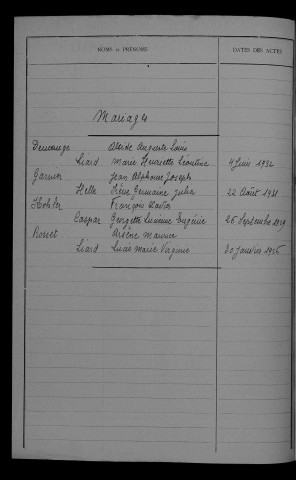 NOMS et PRÉNOMS DATES DES ACTES
Mariages
Demange Alcide Auguste Louis
Liard Marie Henriette Léontine 4 Juin 1932
Garnier Jean Alphonse Joseph
Helle Irène Germaine Julia 22 Août 1931
Hohler François Xavier
Caspar Georgette Lucienne Eugénie 26 Septembre 1929
Bonnet Arsène Maurice
Liard Lucie Marie Virginie 30 Janvier 1926